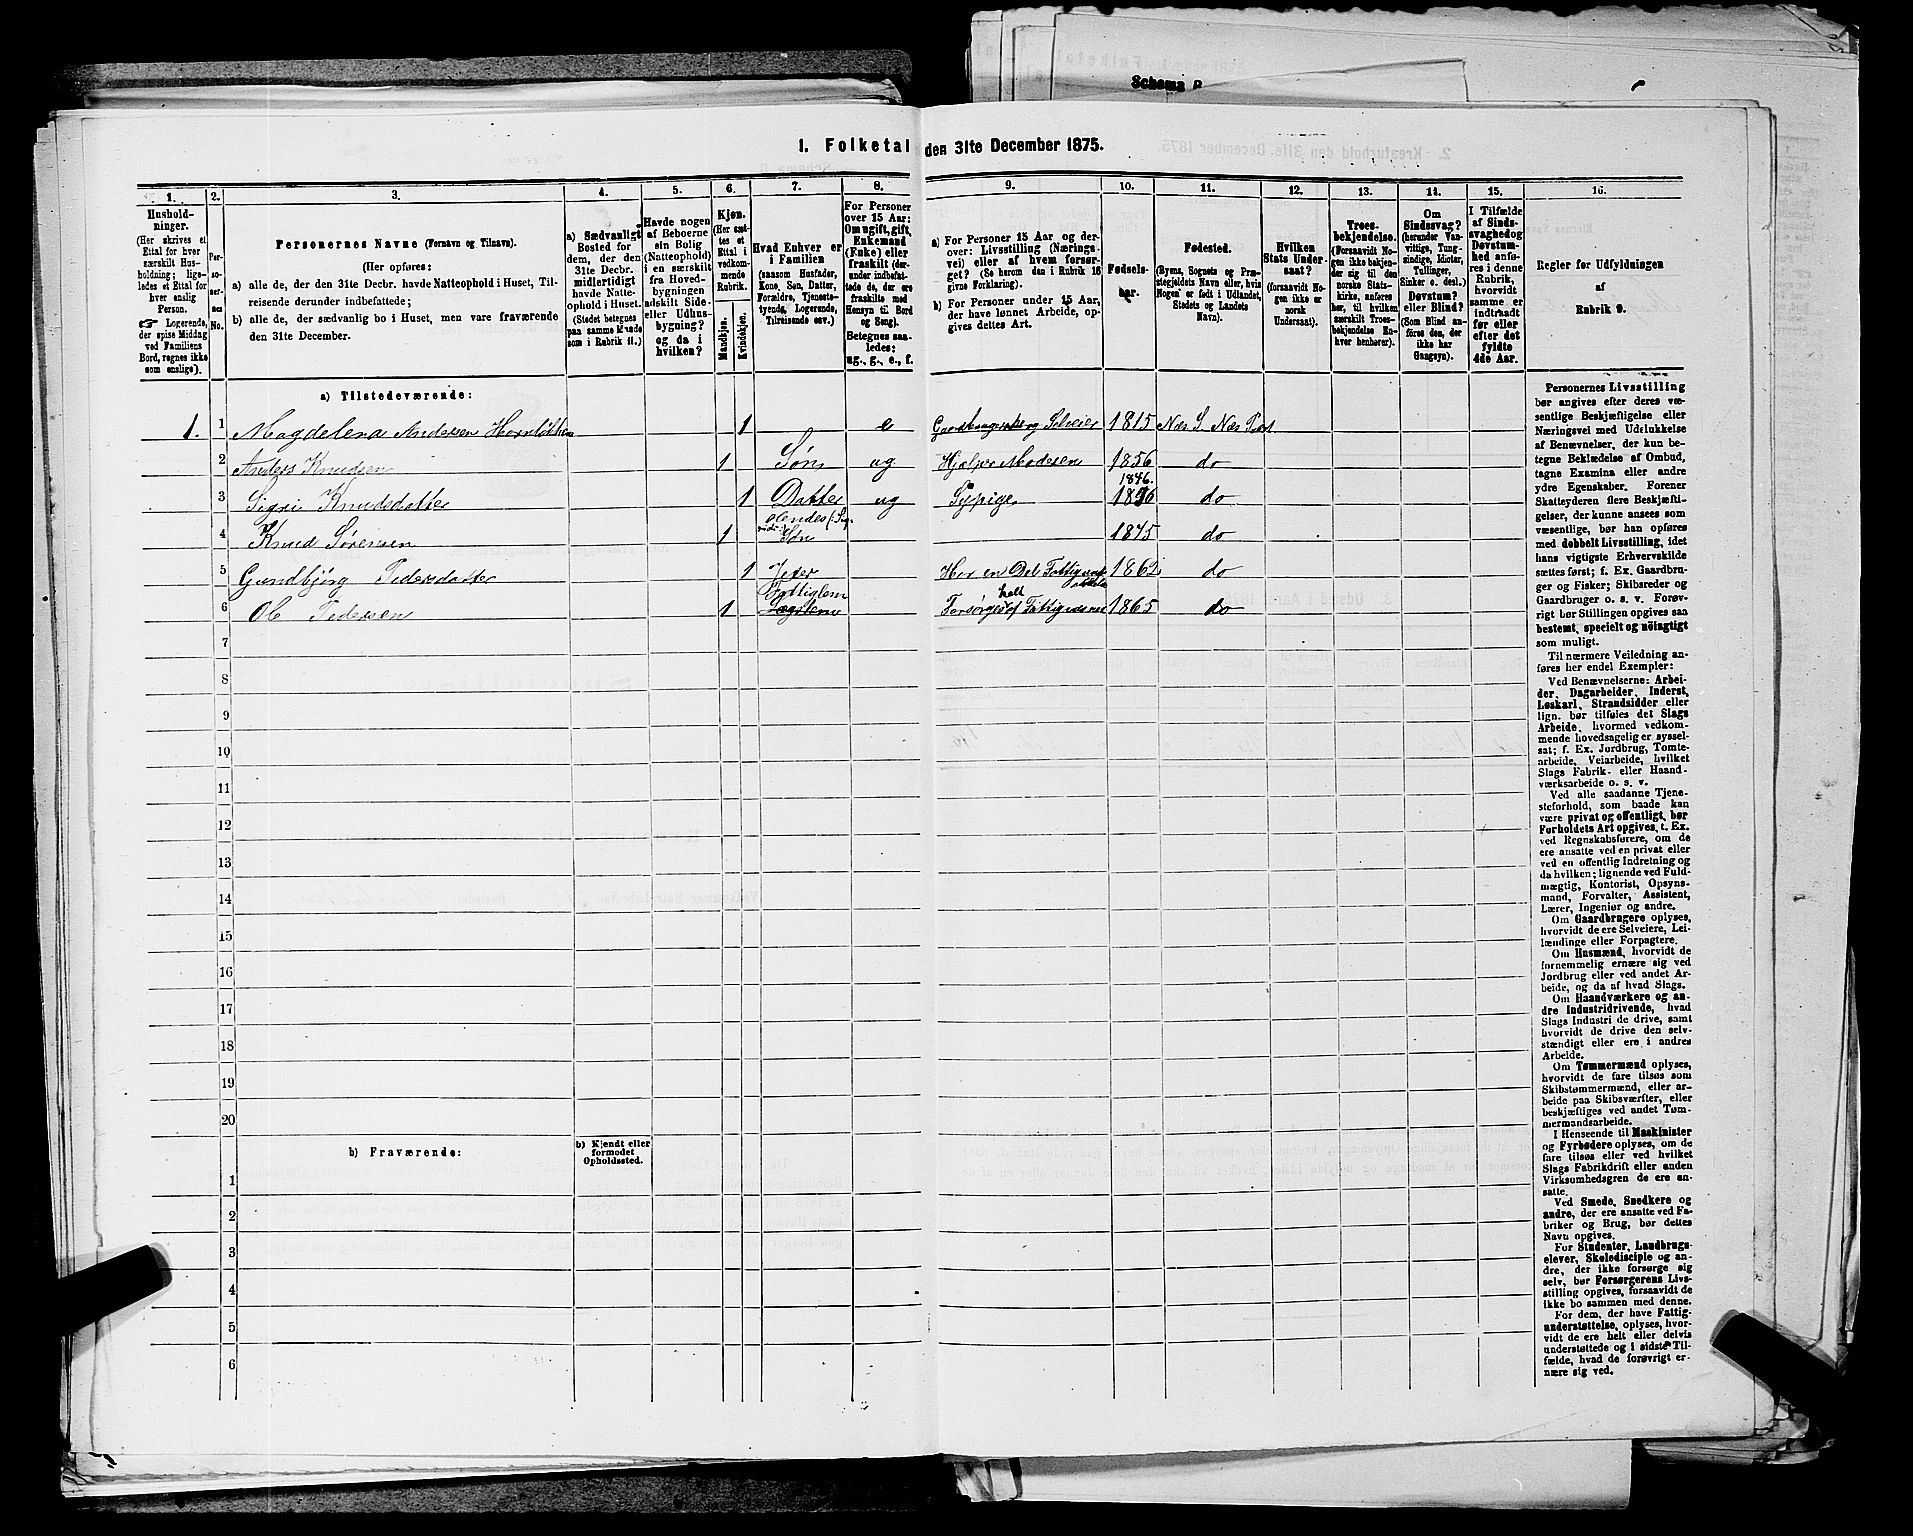 Schema B
1. Folketal den 31te December 1875.
1. 2. 3. 4. 5. 6. 7. 8. 9. 10. 11. 12. 13. 14. 15. 16.
Hushold-
ninger.
(Her skrives et
Ettal for hver
særskilt Hus-
holdning; lige-
ledes et Ettal for
hver enslig
Person.
Logerende,
der spise Middag
ved Familiens
Bord, regnes ikke
som enslige).
Per-
so-
ner-
nes
No.
Personernes Navne (Fornavn og Tilnavn).
(Her opføres:
a) alle de, der den 31te Decbr. havde Natteophold i Huset, Til-
reisende derunder indbefattede;
b) alle de, der sædvanlig bo i Huset, men vare fraværende
den 31te December.
a) Sædvanligt
Bosted for
dem, der den
31te Decbr.
midlertidigt
havde Natte-
ophold i Huset.
(Stedet betegnes
paa samme Maade
som i Rubrik 11.)
Havde nogen
af Beboerne
sin Bolig
(Natteophold)
i en særskilt
fra Hoved-
bygningen
adskilt Side-
eller Udhus-
bygning?
og da i
hvilken?
Kjøn.
(Her sæt-
tes et
Ettal i
vedkom-
mende
Rubrik.
Mandkjøn.
Kvindekjøn.
Hvad Enhver er
i Familien
(saasom Husfader,
Kone, Søn, Datter,
Forældre, Tjeneste-
tyende, Logerende,
Tilreisende osv.)
For Personer
over 15 Aar:
Om ugift, gift,
Enkemand
(Enke) eller
fraskilt (der-
under indbefat-
tede de, der ere
fraskilte med
Hensyn til Bord
og Seng).
Betegnes saa-
ledes:
ug., g., e., f.
a) For Personer 15 Aar og der-
over: Livsstilling (Nærings-
vei) eller af hvem forsør-
get? (Se herom den i Rubrik 16
givne Forklaring).
b) For Personer under 15 Aar,
der have lønnet Arbeide, op-
gives dettes Art.
Fødsels-
aar.
Fødested.
(Byens, Sognets og Præ-
stegjeldets Navn eller, hvis
Nogen er født i Udlandet,
Stedets og Landets
Navn).
Hvilken
Stats Under-
saat?
(forsaavidt No-
gen ikke er
norsk
Undersaat).
Troes-
bekjendelse.
(Forsaavidt No-
gen ikke bekjen-
der sig til den
norske Stats-
kirke, anføres
her, til hvilken
særskilt Troes-
bekjendelse En-
hver henhører).
Om
Sindssvag?
(herunder Van-
vittige, Tung-
sindige, Idioter,
Tullinger,
Sinker o. desl.)
Døvstum?
eller Blind?
(Som Blind an-
føres den, der
ikke har
Gangsyn).
I Tilfælde
af Sinds-
svaghed og
Døvstum-
hed anfø-
res i denne
Rubrik,
hvorvidt
samme er
indtraadt
før eller
efter det
fyldte
4de Aar.
Regler for Udfyldningen
af
Rubrik 9.
a) Tilstedeværende:
1. 1 Magdelena Andersen 1 e Gaardbrugerskerg Selveier 1815 Næs S. Næs Præst
2 Anders Knudsen 1 Søn ug Hjælper Moderen 1856 do
1846.
3 Sigri Knudsdatter 1 Datter ug Sypige 1856 do
4 Knud Sørensen 1 Søn 1875 do
5 Gundbjørg Pedersdatter 1 Har en Del 1862 do
Fattiglem helt
6 Ole Pedersen 1 Forsørges af Fattigvæsenet 1865 do
7
8
9
10
11
12
13
14
15
16
17
18
19
20
b) Fraværende:
b) Kjendt eller
formodet
Opholdssted.
1
2
3
4
5
6
Personernes Livsstilling
bør angives efter deres væ-
sentlige Beskjæftigelse eller
Næringsvei med Udelukkelse
af Benævnelser, der kun be-
tegne Beklædelse af Ombud,
tagne Examina eller andre
ydre Egenskaber. Forener
Skatteyderen flere Beskjæfti-
gelser, der kunne ansees som
væsentlige, bør han opføres
med dobbelt Livsstilling, idet
hans vigtigste Erhvervskilde
sættes først; f. Ex. Gaardbru-
ger og Fisker; Skibsreder og
Gaardbruger o. s. v. Forøv-
rigt bør Stillingen opgives saa
bestemt, specielt og nöiagtigt
som muligt.
Til nærmere Veiledning an-
føres her endel Exempler:
Ved Benævnelserne: Arbei-
der, Dagarbeider, Inderst,
Løskarl, Strandsidder eller
lign. bør tilføies det Slags
Arbeide, hvormed vedkom-
mende hovedsagelig er syssel-
sat; f. Ex. Jordbrug, Tømte-
arbeide, Veiarbeide, hvilket
Slags Fabrik- eller Haand-
værksarbeide o. s. v.
Ved alle saadanne Tjene-
steforhold, som baade kan
være privat og offentligt, bør
Forholdets Art opgives, t. Ex.
ved Regnskabsførere, om de
ere ansatte ved en privat eller
ved en offentlig Indretning og
da hvilken; lignende ved Fuld-
mægtig, Kontorist, Opsyns-
mand, Forvalter, Assistent,
Lærer, Ingeniør og andre.
Om Gaardbrugere oplyses,
hvorvidt de ere Selveiere, Lei-
lændinge eller Forpagtere.
Om Husmænd, hvorvidt de
fornemmelig ernære sig ved
Jordbrug eller ved andet Ar-
beide, og da af hvad Slags.
Om Haandværkere og an-
dre Industridrivende, hvad
Slags Industri de drive, samt
hvorvidt de drive den selv-
stændigt eller ere i andres
Arbeide.
Om Tømmermænd oplyses,
hvorvidt de fare tilsøs som
Skibstømmermænd, eller ar-
beide paa Skibsværfter, eller
beskjæftiges ved andet Tøm-
mermandsarbeide.
I Henseende til Maskinister
og Fyrbødere oplyses, om de
fare tilsøs eller ved hvilket
Slags Fabrikdrift eller anden
Virksomhedsgren de ere an-
satte.
Ved Smede, Snedkere og
andre, der ere ansatte ved Fa-
briker og Brug, bør dettes
Navn opgives.
For Studenter, Landbrugs-
elever, Skoledisciple og an-
dre, der ikke forsørge sig
selv, bør Forsørgerens Livs-
stilling opgives, forsaavidt de
ikke bo sammen med denne.
For dem, der have Fattig-
understøttelse, oplyses, hvor-
vidt de ere helt eller delvis
understøttede og i sidste Til-
fælde, hvad de forøvrigt er-
nære sig ved.